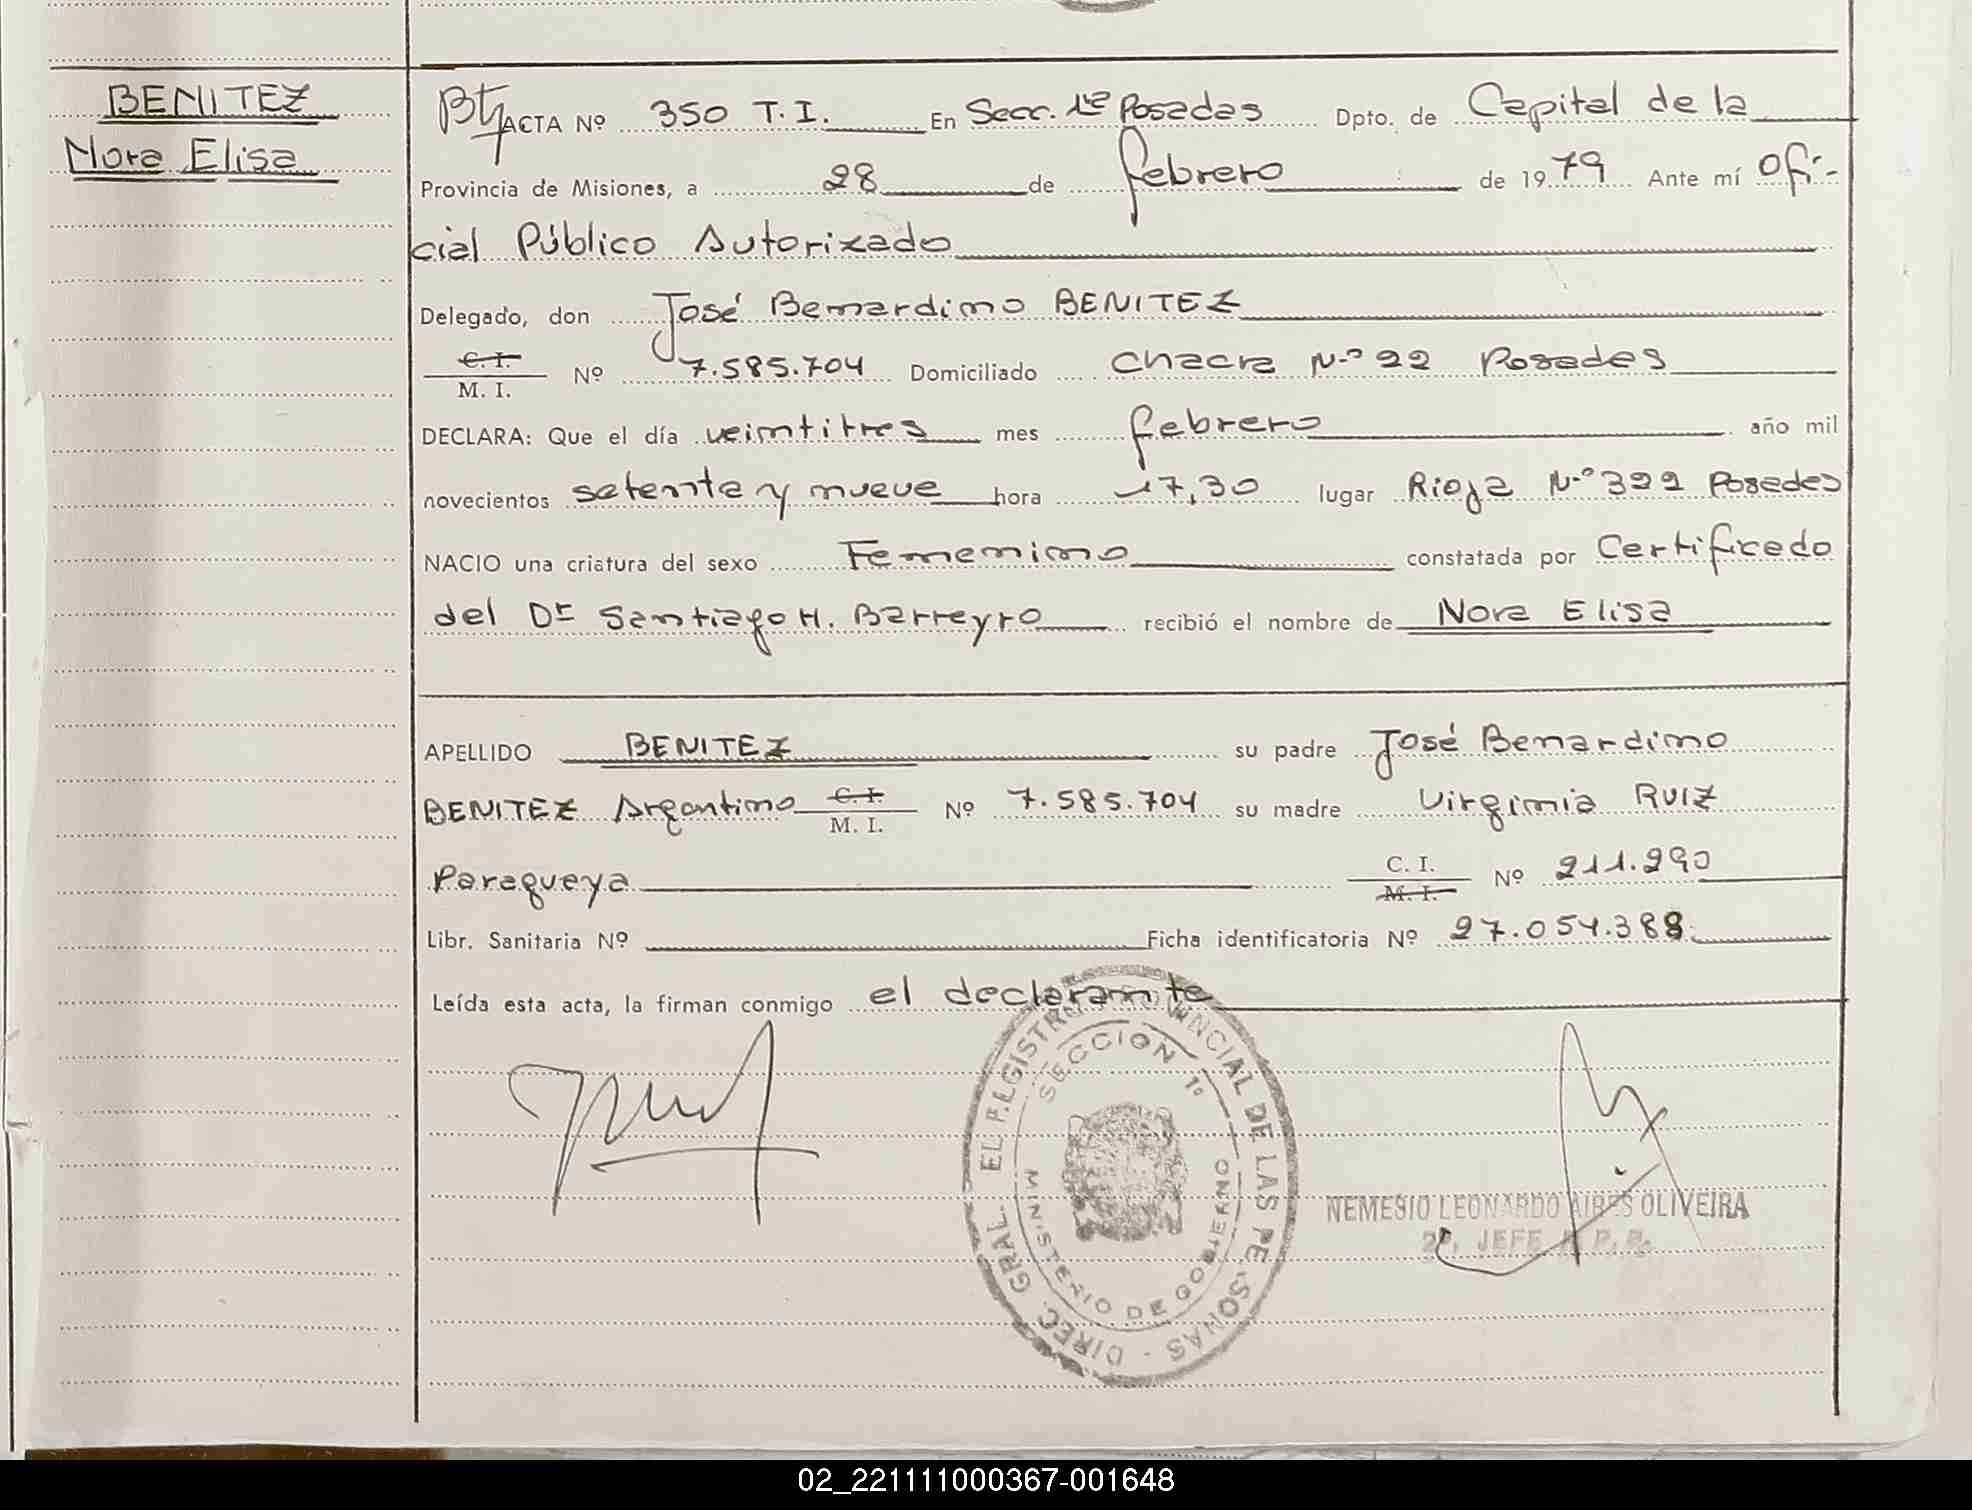 BENITEZ
Nora Elisa
ACTA Nº 350 T.I. En Secc. 1ra Posadas Dpto. de Capital de la
Provincia de Misiones, a 28 de febrero de 1979 Ante mí Ofi-
cial Público Autorizado
Delegado, don José Bernardino BENITEZ
C. I.
M. I. Nº 7.585.704 Domiciliado Chacra Nº 22 Posadas
DECLARA: Que el día veintitres mes febrero año mil
novecientos setenta y nueve hora 17,30 lugar Rioja Nº 322 Posadas
NACIO una criatura del sexo Femenino constatada por Certificado
del Dr Santiago H. Barreyro recibió el nombre de Nora Elisa
APELLIDO BENITEZ su padre José Bernardino
BENITEZ Argentino C. I. M. I. Nº 7.585.704 su madre Virginia RUIZ
Paraguaya C. I. M. I. Nº 211.290
Libr. Sanitaria Nº Ficha identificatoria Nº 27.054.388
Leída esta acta, la firman conmigo el declarante
DIREC. GRAL. EL REGISTRO PROVINCIAL DE LAS PERSONAS
SECCION 1º
MINISTERIO DE GOBIERNO
NEMESIO LEONARDO AIRES OLIVEIRA
2º. JEFE R. P. P.
02_221111000367-001648